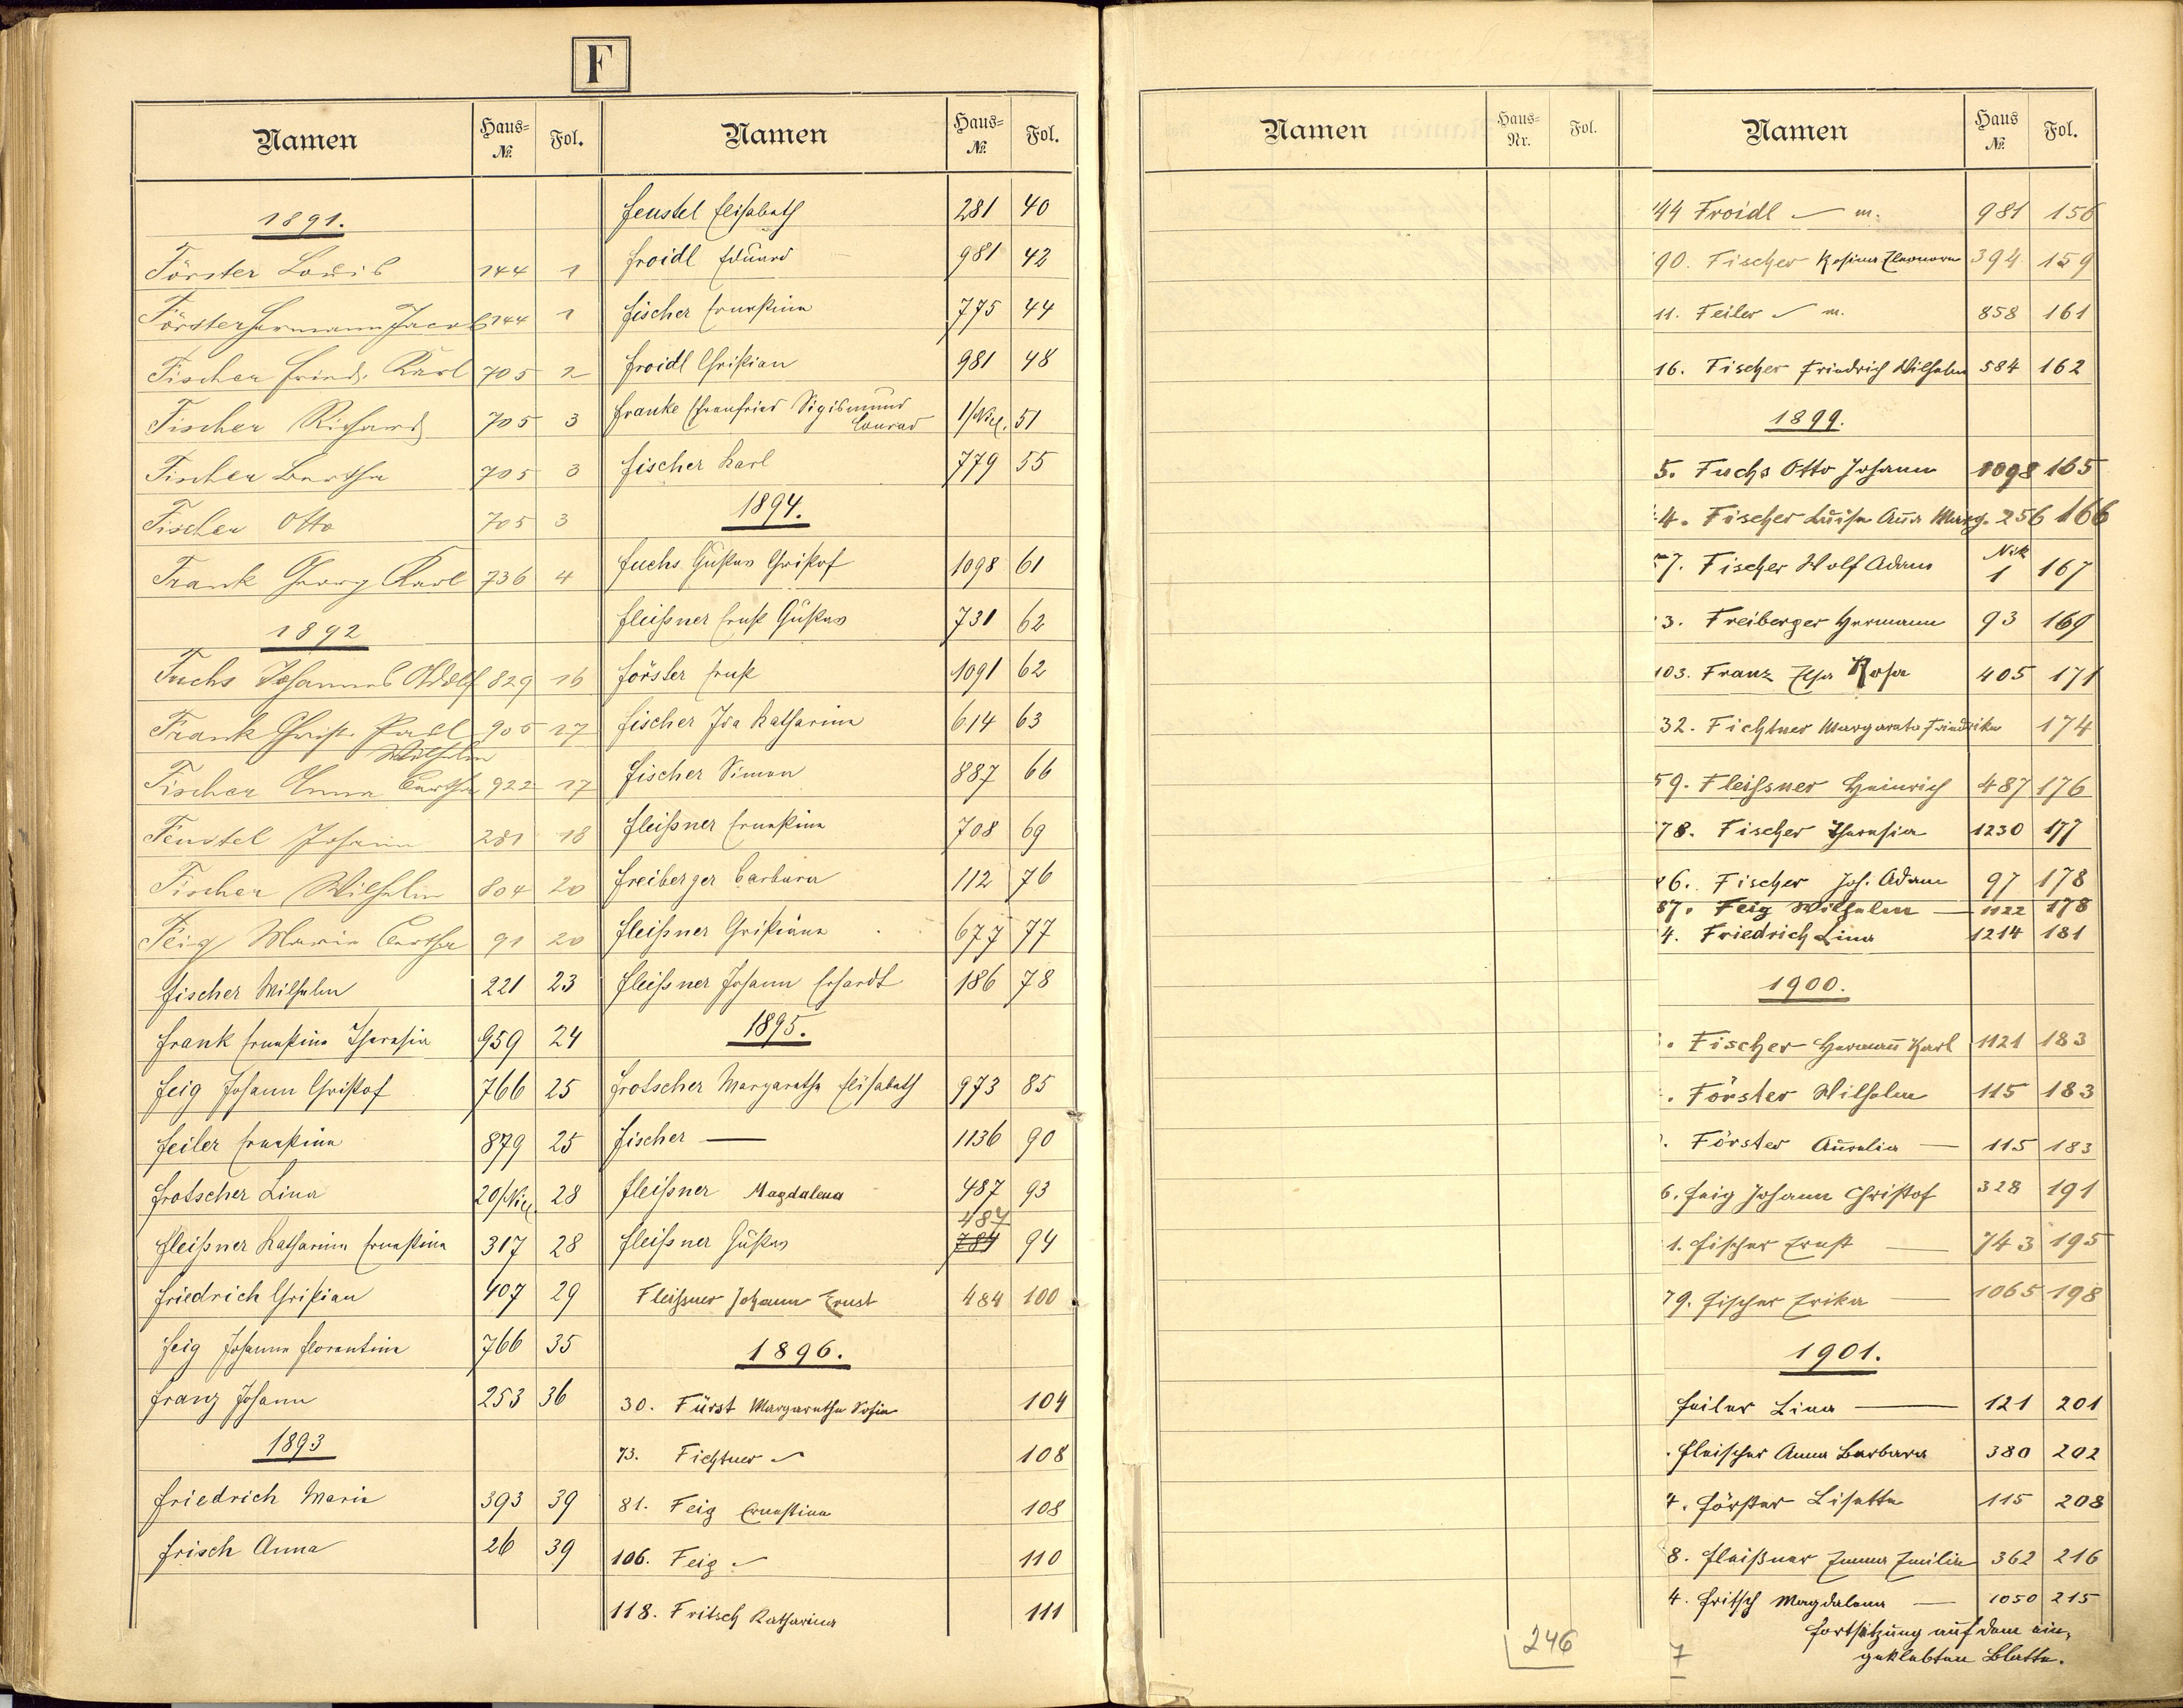 F
Namen Haus= № Fol.
1891.
Förster Louis 144 1
Förster Hermann Jacob 144 1
Fischer Friedr. Karl 705 2
Fischer Richard 705 3
Fischer Bertha 705 3
Fischer Otto 705 3
Frank Georg Karl 736 4
1892
Fuchs Johannes Adolf 829 16
Frank Christ. Karl 905 17
Wilhelm
Fischer Anna Bertha 922 17
Feustel Johann 281 18
Fischer Wilhelm 804 20
Feig Maria Bertha 91 20
Fischer Wilhelm 221 23
Frank Ernestine Theresia 959 24
Feig Johann Christof 766 25
Feiler Ernestine 879 25
Frotscher Lina 20/Nicl. 28
Fleißner Katharina Ernestina 317 28
Friedrich Christian 407 29
Feig Johanna Florentine 766 35
Franz Johann 253 36
1893
Friedrich Maria 393 39
Frisch Anna 26 39
Namen Haus= № Fol.
Feustel Elisabeth 281 40
Froidl Eduard 981 42
Fischer Ernestine 775 44
Froidl Christian 981 48
Franke Ehrenfried Sigismund
Conrad 1/Nicl. 51
Fischer Karl 779 55
1894.
Fuchs Gustav Christof 1098 61
Fleißner Ernst Gustav 731 62
Förster Ernst 1091 62
Fischer Ida Katharina 614 63
Fischer Simon 887 66
Fleißner Ernestine 708 69
Freiberger Barbara 112 76
Fleißner Christiana 677 77
Fleißner Johann Erhardt 186 78
1895.
Frotscher Margaretha Elisabeth 973 85
Fischer — 1136 90
Fleißner Magdalena 487 93
487
Fleißner Gustav 784 94
Fleißner Johann Ernst 484 100
1896.
30. Fürst Margaretha Sofie 104
73. Fichtner 108
81. Feig Ernestina 108
106. Feig 110
118. Fritsch Katharina 111
Namen Haus= Nr. Fol.
246
Namen Haus № Fol.
44 Froidl — m. 981 156
90. Fischer Rosina Eleonora 394 159
11. Feiler m. 858 161
16. Fischer Friedrich Wilhelm 584 162
1899.
5. Fuchs Otto Johann 1098 165
4. Fischer Luise Anna Marg. 256 166
57. Fischer Wolf Adam Nik 1 167
3. Freiberger Hermann 93 169
103. Franz Elsa Rosa 405 171
32. Fichtner Margareta Friedrike 174
59. Fleissner Heinrich 487 176
78. Fischer Theresia 1230 177
86. Fischer Joh. Adam 97 178
87. Feig Wilhelm — 1122 178
4. Friedrich Lina 1214 181
1900.
. Fischer Hermann Karl 1121 183
. Förster Wilhelm 115 183
. Förster Aurelia — 115 183
6. Feig Johann Christof 328 191
1. Fischer Ernst — 743 195
79. Fischer Erika — 1065 198
1901.
Feiler Lina — 121 201
. Fleischer Anna Barbara 380 202
4. Förster Lisette 115 208
8. Fleißner Emma Emilie 362 216
4. Fritsch Magdalena — 1050 215
Fortsetzung auf dem ein=
geklebten Blatte.
7